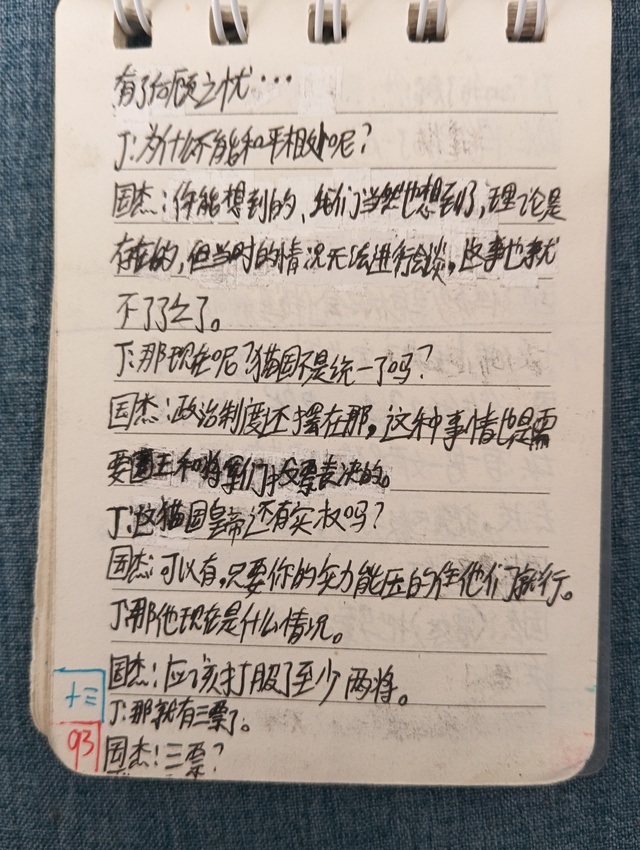 有了何顾之忧…
丁:为什么不能和平相处呢?
国杰:你能想到的、我们当然也想到了,理论是
存在的,但当时的情况无法进行会谈。这事也就
不了了之了。
丁:那现在呢?猫国不是统一了吗?
国杰:政治制度还摆在那。这种事情也是需
要国王和将军们投票表决的。
丁:这猫国皇帝还有实权吗?
国杰:可以有,只要你的实力能压的住他们就行。
丁:那他现在是什么情况。
国杰:应该打服了至少两将。
丁:那就有三票了。
国杰:三票?
十三
93